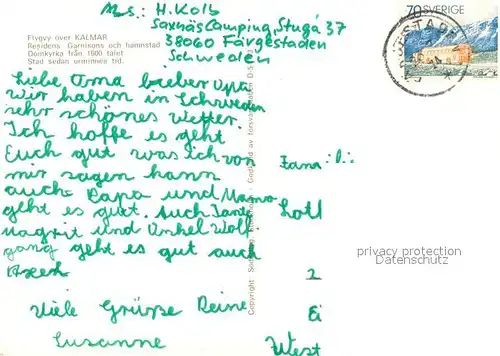 Abs.: H. Kolb
Saxnäs Camping, Stugá 37
38060 Färgestaden
Schweden
70 SVERIGE
Flygvy över KALMAR
Residens, Garnisons och hamnstad
Domkyrka från 1600 talet
Stad sedan urminnes tid.
Liebe Oma lieber Opa
wir haben in Schweden
sehr schönes Wetter.
Ich hoffe es geht
Euch gut was ich von
mir sagen kann
auch Papa und Mama
geht es gut. Auch Tante
Magrit und Onkel Wolf
gang geht es gut auch
Axel
Viele Grüsse Deine
Susanne
Fama
Lotl
2
Ei
West
Copyright
privacy protection
Datenschutz